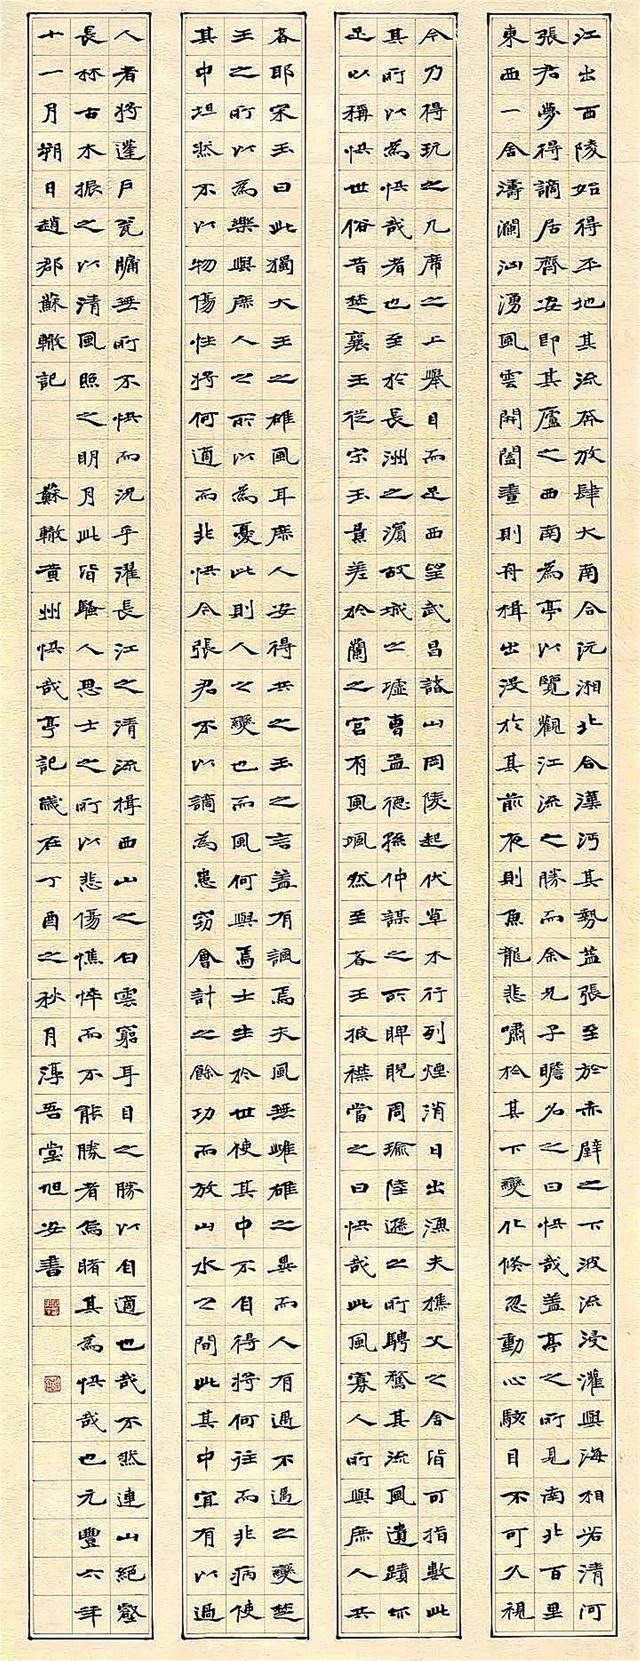 江出西陵始得平地其流奔放肆大南合沅湘北合漢沔其勢益張至於赤壁之下波流浸灌與海相若清河
張君夢得謫居齊安即其廬之西南為亭以覽觀江流之勝而余兄子瞻名之曰快哉蓋亭之所見南北百里
東西一舍濤瀾洶湧風雲開闔晝則舟楫出沒於其前夜則魚龍悲嘯於其下變化倏忽動心駭目不可久視
今乃得玩之几席之上舉目而足西望武昌諸山岡陵起伏草木行列煙消日出漁夫樵父之舍皆可指數此
其所以為快哉者也至於長洲之濱故城之墟曹孟德孫仲謀之所睥睨周瑜陸遜之所騁騖其流風遺蹟亦
足以稱快世俗昔楚襄王從宋玉景差於蘭之宮有風颯然至者王披襟當之曰快哉此風寡人所與庶人共
者耶宋玉曰此獨大王之雄風耳庶人安得共之玉之言蓋有諷焉夫風無雌雄之異而人有遇不遇之變楚
王之所以為樂與庶人之所以為憂此則人之變也而風何與焉士生於世使其中不自得將何往而非病使
其中坦然不以物傷性將何適而非快今張君不以謫為患竊會計之餘功而放山水之間此其中宜有以過
人者將蓬戶瓮牖無所不快而況乎濯長江之清流揖西山之白雲窮耳目之勝以自適也哉不然連山絕壑
長林古木振之以清風照之明月此皆騷人思士之所以悲傷憔悴而不能勝者烏睹其為快哉也元豐六年
十一月朔日趙郡蘇轍記 蘇轍黃州快哉亭記歲在丁酉之秋月淳吾堂旭安書